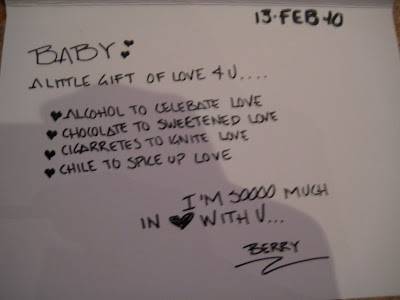 13·FEB·10
BABY:
A LITTLE GIFT OF LOVE 4 U....
♥ ALCOHOL TO CELEBATE LOVE
♥ CHOCOLATE TO SWEETENED LOVE
♥ CIGARRETES TO IGNITE LOVE
♥ CHILE TO SPICE UP LOVE
I'M SOOOO MUCH
IN ♥ WITH U...
BERRY